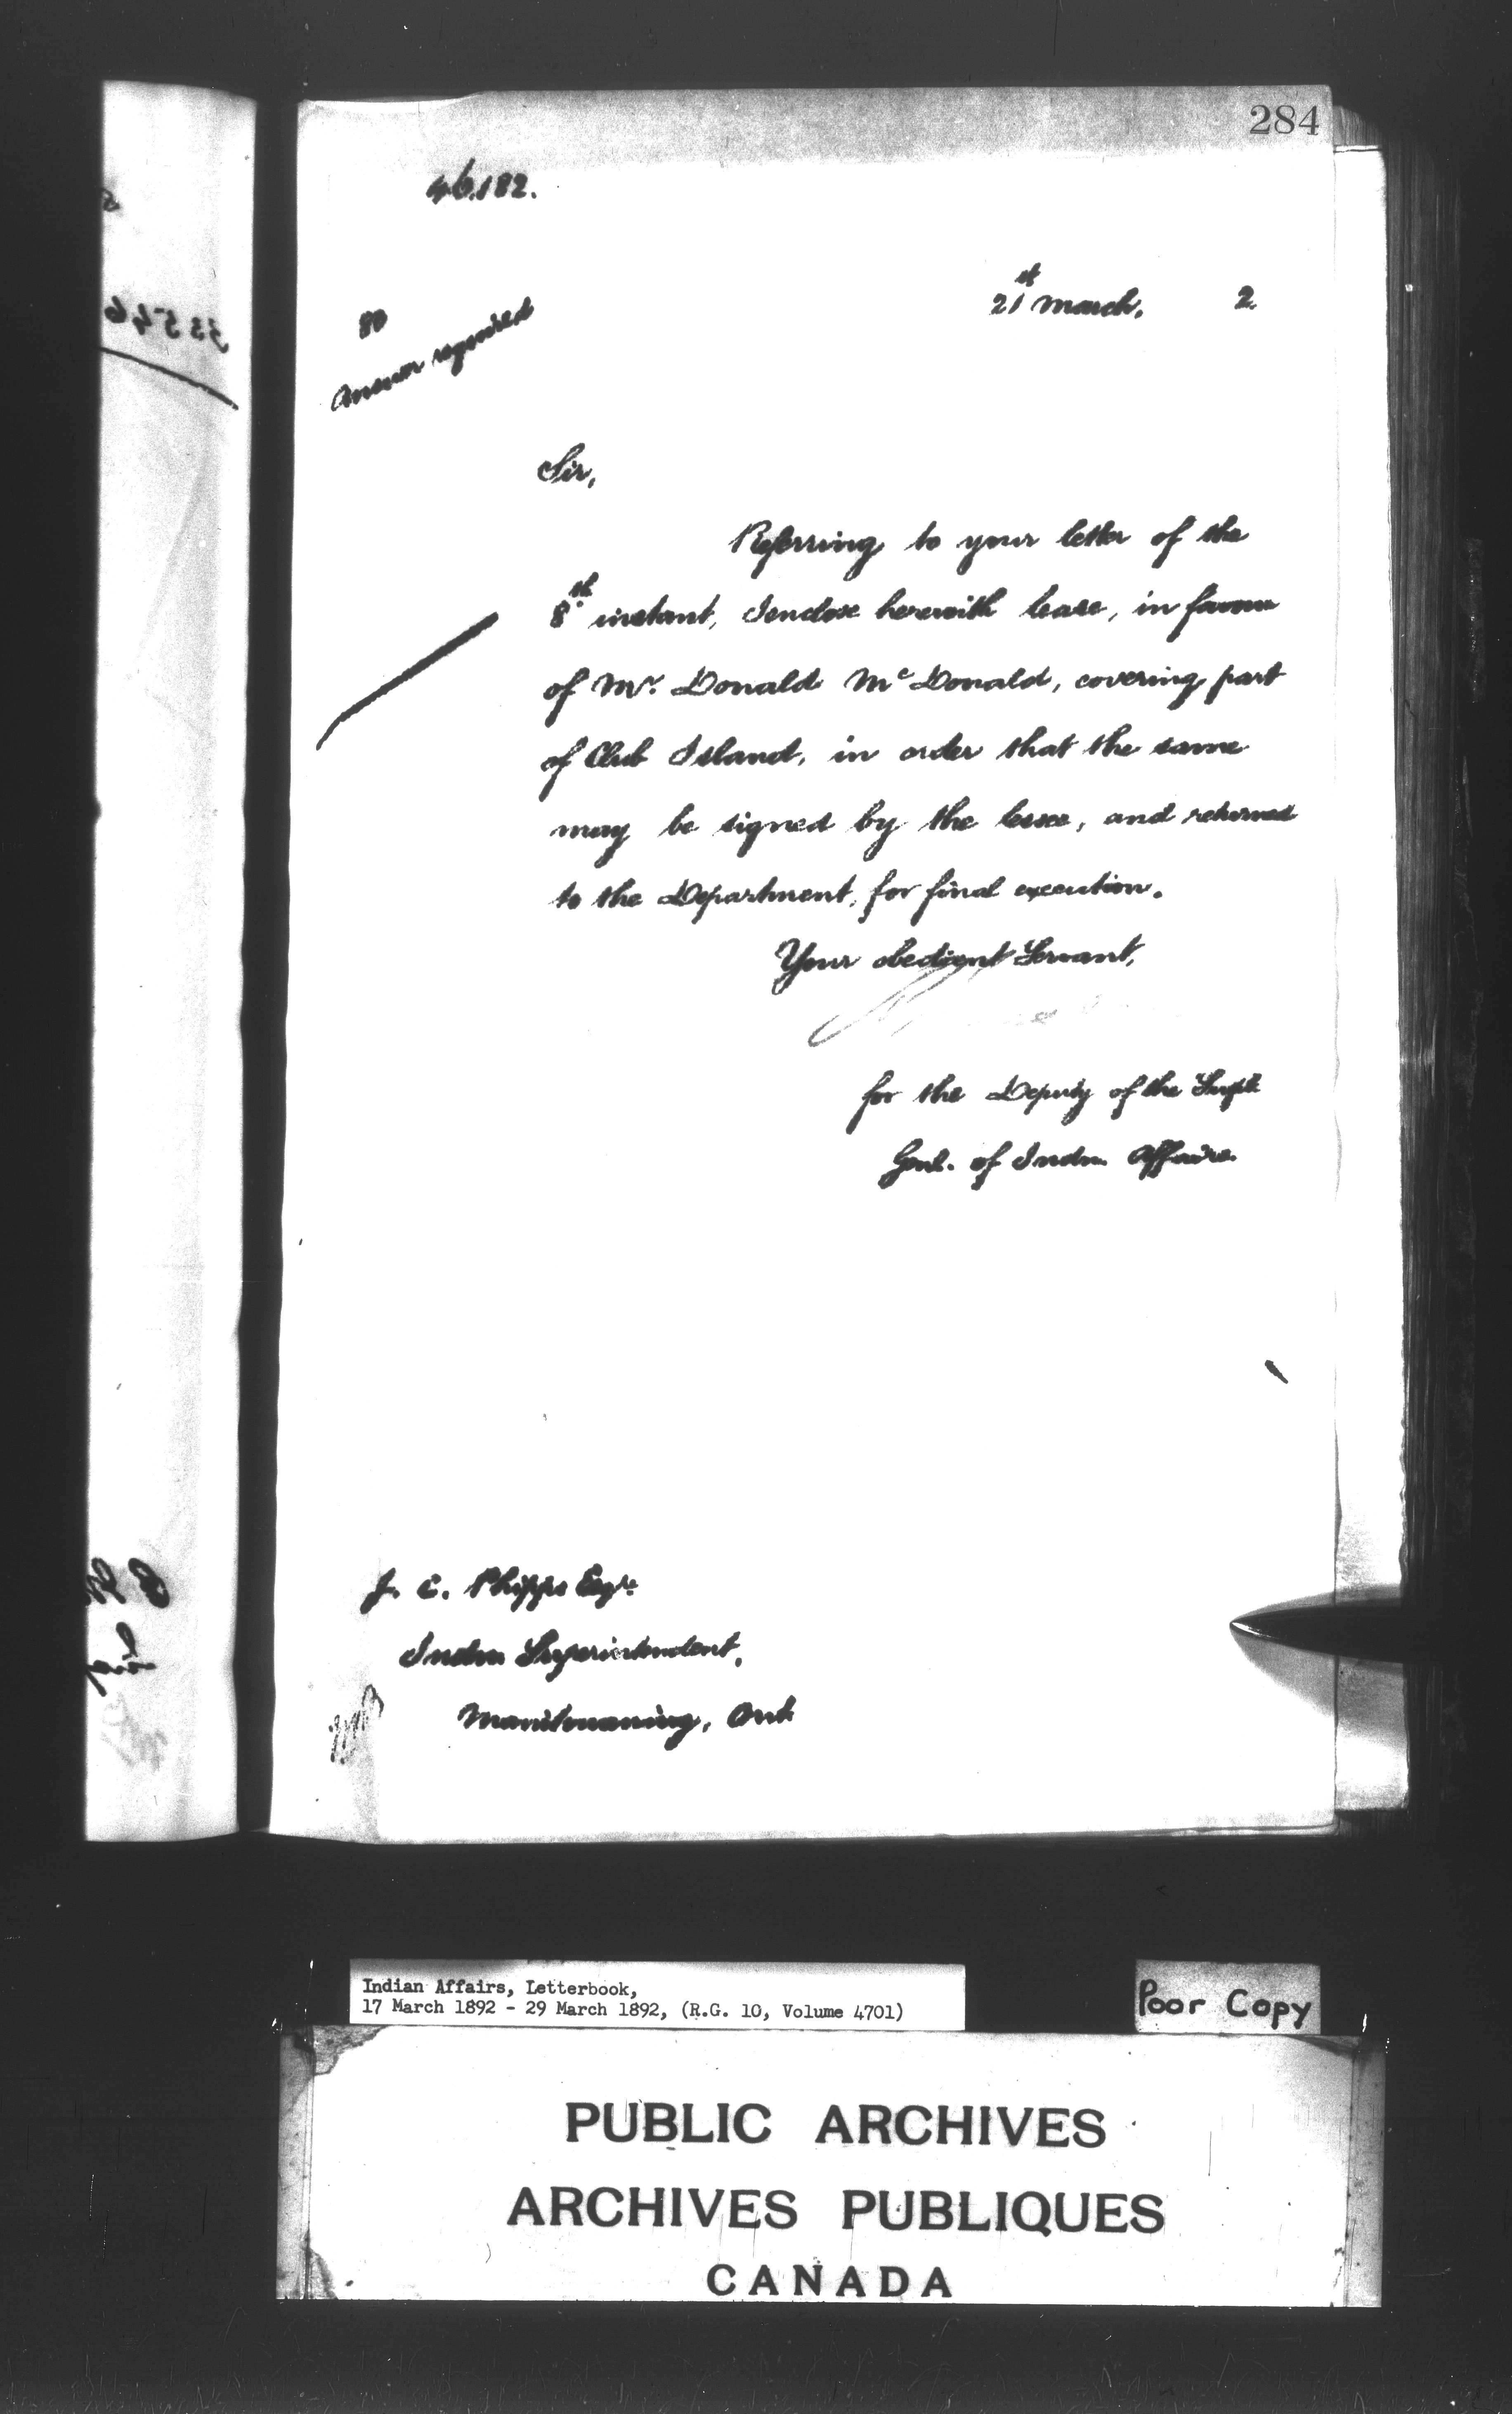 284
46.182.
21st March, 2.
80
Answer required
Sir,
Referring to your letter of the
8th instant, I enclose herewith lease, in favour
of Mr. Donald McDonald, covering part
of Club Island, in order that the same
may be signed by the lessee, and returned
to the Department, for final execution.
Your obedient Servant,
for the Deputy of the Supt.
Genl. of Indn. Affairs.
J. C. Phipps Esqre.
Indn Superintendent,
Manitowaning, Ont.
33546
Indian Affairs, Letterbook,
17 March 1892 - 29 March 1892, (R.G. 10, Volume 4701)
Poor Copy
PUBLIC ARCHIVES
ARCHIVES PUBLIQUES
CANADA